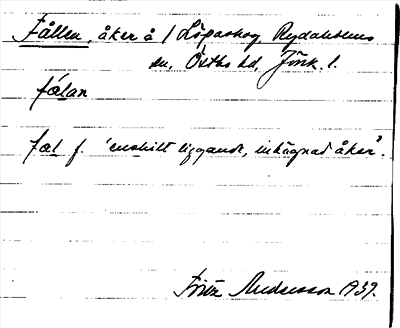 Fållen, åker å 1 Löpaskog Rydaholms
sn, Östbo hd, Jönk. l.
fålan
fål f. 'enskilt liggande, inhägnad åker'.
Andersson 1939.